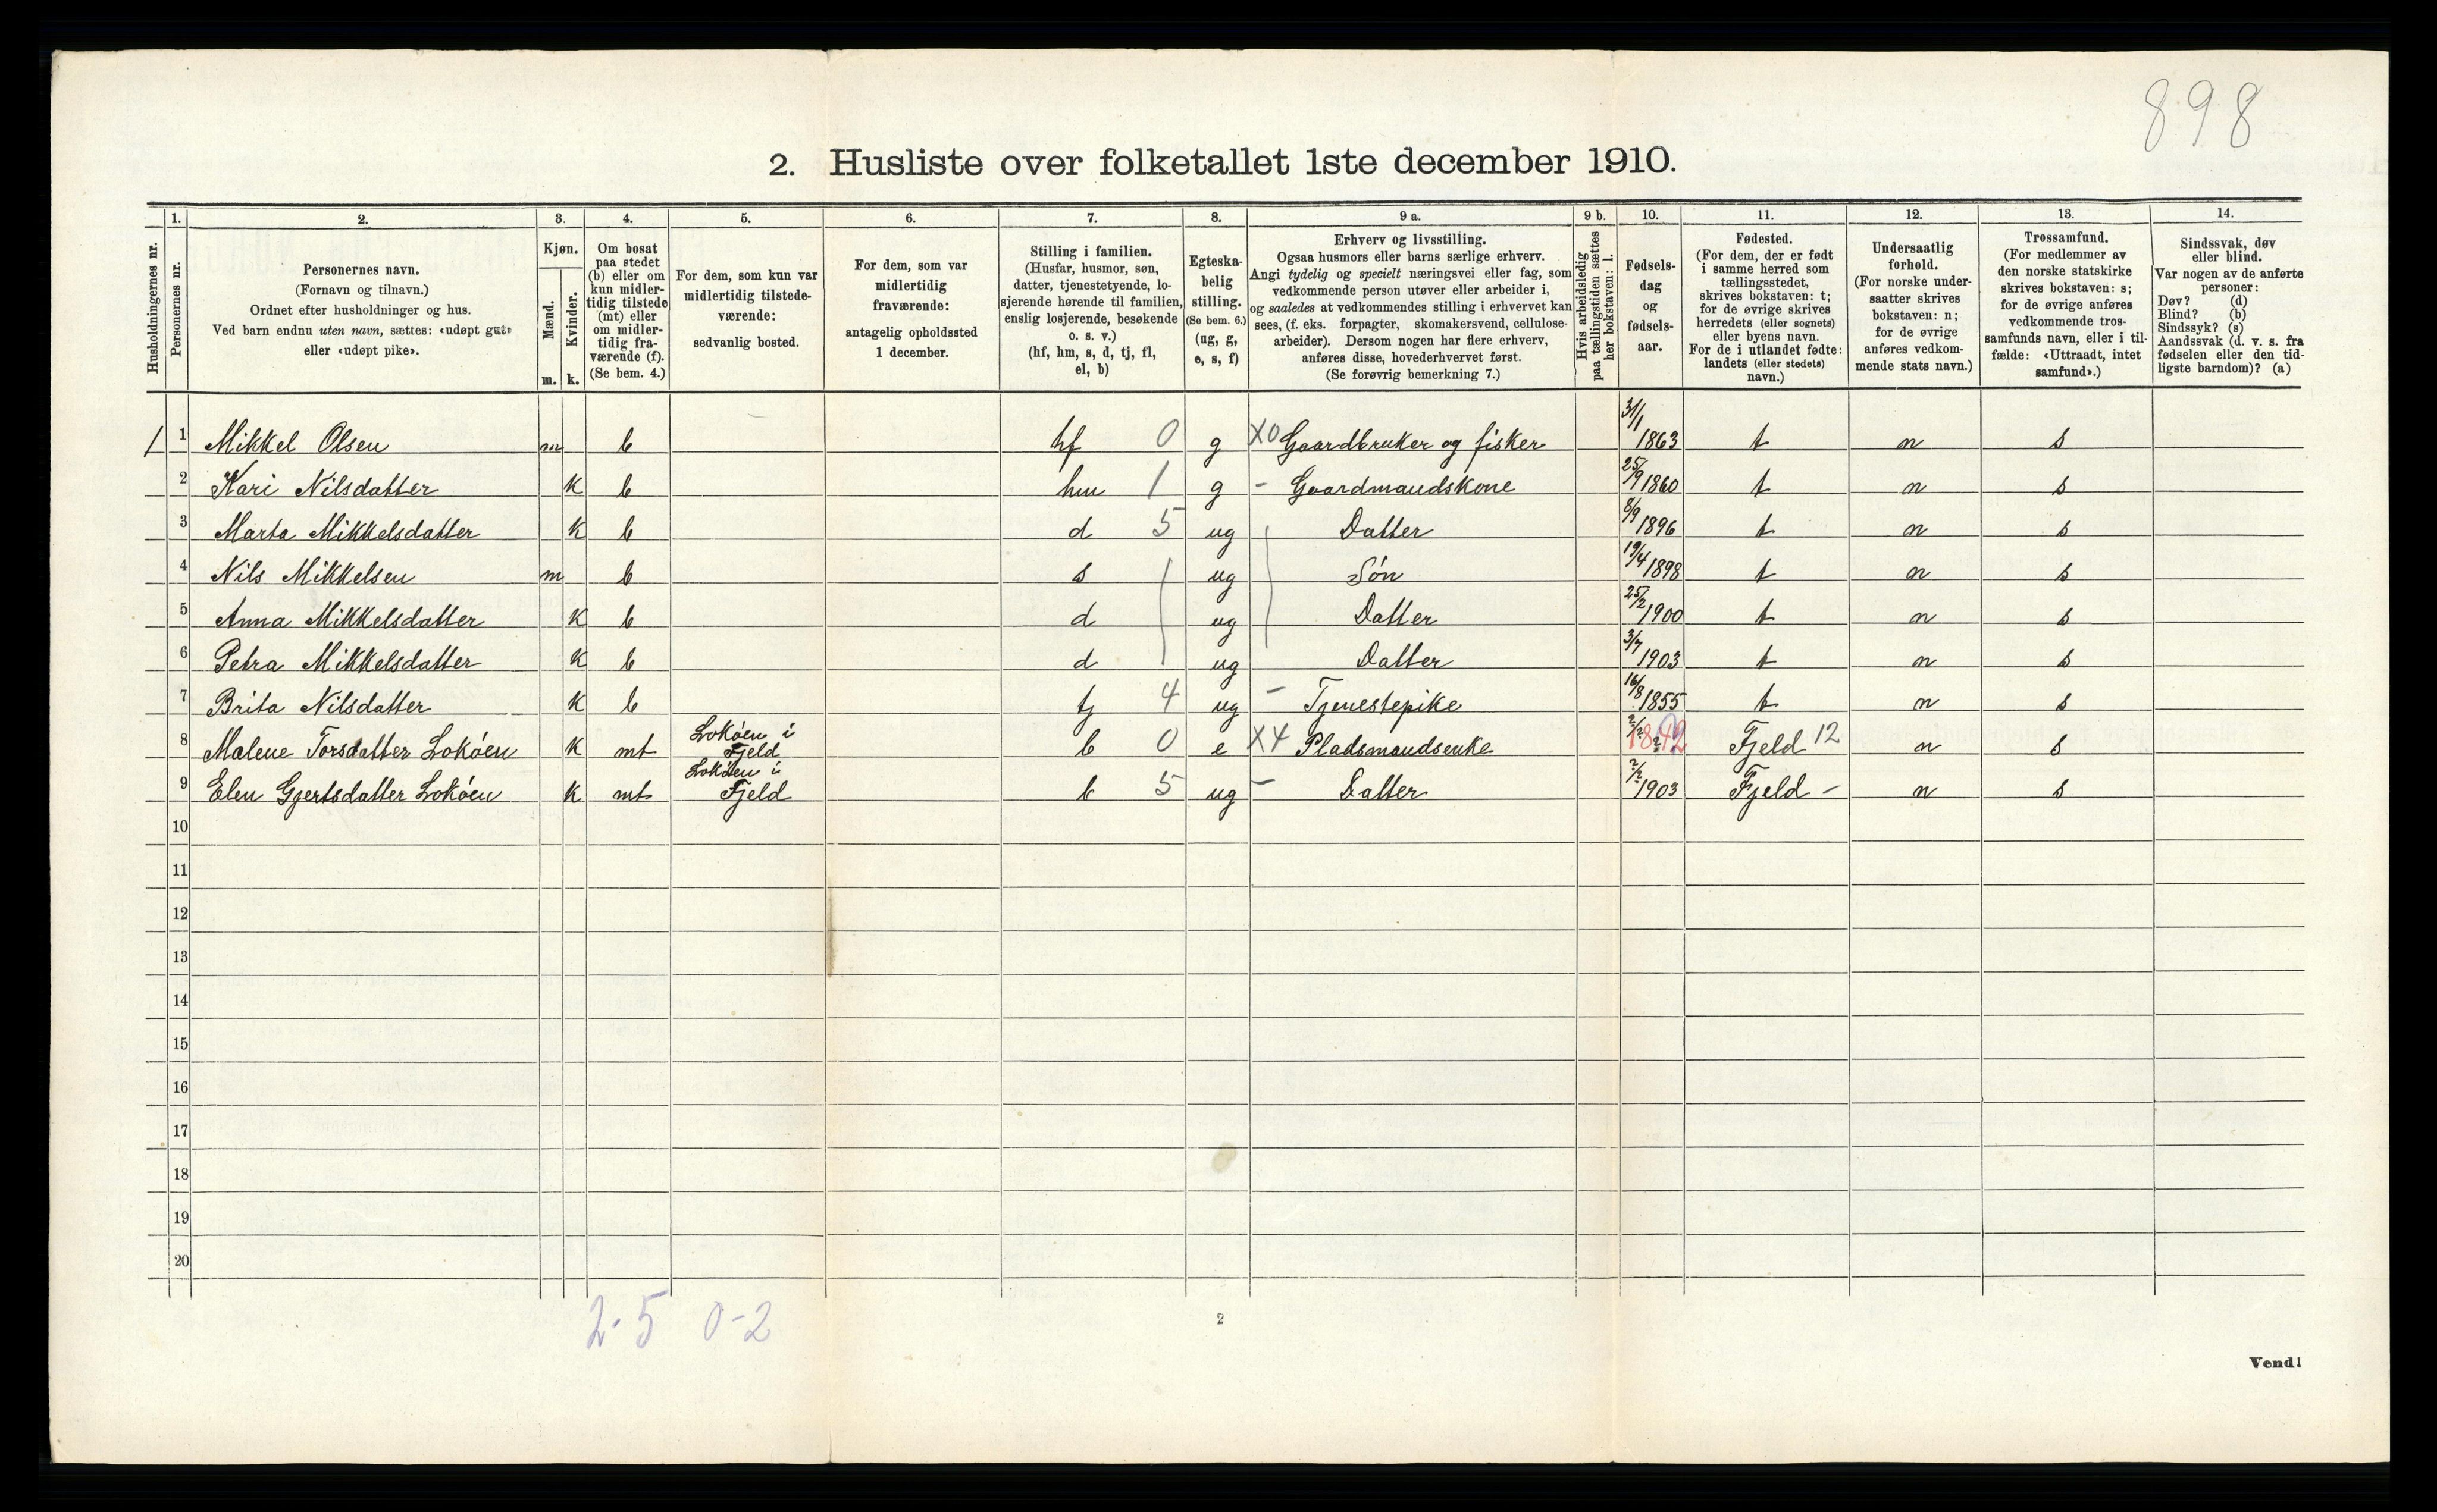 898
2. Husliste over folketallet 1ste december 1910.
Husholdningernes nr.
1.
Personernes nr.
2.
Personernes navn.
(Fornavn og tilnavn.)
Ordnet efter husholdninger og hus.
Ved barn endnu uten navn, sættes: «udøpt gut»
eller «udøpt pike».
3.
Kjøn.
Mænd.
Kvinder.
m. k.
4.
Om bosat
paa stedet
(b) eller om
kun midler-
tidig tilstede
(mt) eller
om midler-
tidig fra-
værende (f).
(Se bem. 4.)
5.
For dem, som kun var
midlertidig tilstede-
værende:
sedvanlig bosted.
6.
For dem, som var
midlertidig
fraværende:
antagelig opholdssted
1 december.
7.
Stilling i familien.
(Husfar, husmor, søn,
datter, tjenestetyende, lo-
sjerende hørende til familien,
enslig losjerende, besøkende
o. s. v.)
(hf, hm, s, d, tj, fl,
el, b)
8.
Egteska-
belig
stilling.
(Se bem. 6.)
(ug, g,
e, s, f)
9 a.
Erhverv og livsstilling.
Ogsaa husmors eller barns særlige erhverv.
Angi tydelig og specielt næringsvei eller fag, som
vedkommende person utøver eller arbeider i,
og saaledes at vedkommendes stilling i erhvervet kan
sees, (f. eks. forpagter, skomakersvend, cellulose-
arbeider). Dersom nogen har flere erhverv,
anføres disse, hovederhvervet først.
(Se forøvrig bemerkning 7.)
9 b.
Hvis arbeidsledig
paa tællingstiden sættes
her bokstaven: l.
10.
Fødsels-
dag
og
fødsels-
aar.
11.
Fødested.
(For dem, der er født
i samme herred som
tællingsstedet,
skrives bokstaven: t;
for de øvrige skrives
herredets (eller sognets)
eller byens navn.
For de i utlandet fødte:
landets (eller stedets)
navn.)
12.
Undersaatlig
forhold.
(For norske under-
saatter skrives
bokstaven: n;
for de øvrige
anføres vedkom-
mende stats navn.)
13.
Trossamfund.
(For medlemmer av
den norske statskirke
skrives bokstaven: s;
for de øvrige anføres
vedkommende tros-
samfunds navn, eller i til-
fælde: «Uttraadt, intet
samfund».)
14.
Sindssvak, døv
eller blind.
Var nogen av de anførte
personer:
Døv? (d)
Blind? (b)
Sindssyk? (s)
Aandssvak (d. v. s. fra
fødselen eller den tid-
ligste barndom)? (a)
1 1 Mikkel Olsen m b hf 0 g X0 Gaardbruker og fisker 31/1 1863 t n s
2 Kari Nilsdatter k b hm 1 g - Gaardmandskone 25/9 1860 t n s
3 Marta Mikkelsdatter k b d 5 ug Datter 8/9 1896 t n s
4 Nils Mikkelsen m b s ug Søn 19/4 1898 t n s
5 Anna Mikkelsdatter k b d ug Datter 25/2 1900 t n s
6 Petra Mikkelsdatter k b d ug Datter 3/7 1903 t n s
7 Brita Nilsdatter k b tj 4 ug - Tjenestepike 16/8 1855 t n s
8 Malene Torsdatter Lokøen k mt Lokøen i Fjeld b 0 e X4 Pladsmandsenke ?/? Fjeld 12 n s
9 Elen Gjertsdatter Lokøen k mt Lokøen i Fjeld b 5 ug - Datter ?/? 1903 Fjeld - n s
10
11
12
13
14
15
16
17
18
19
20
2-5 0-2
2
Vend!